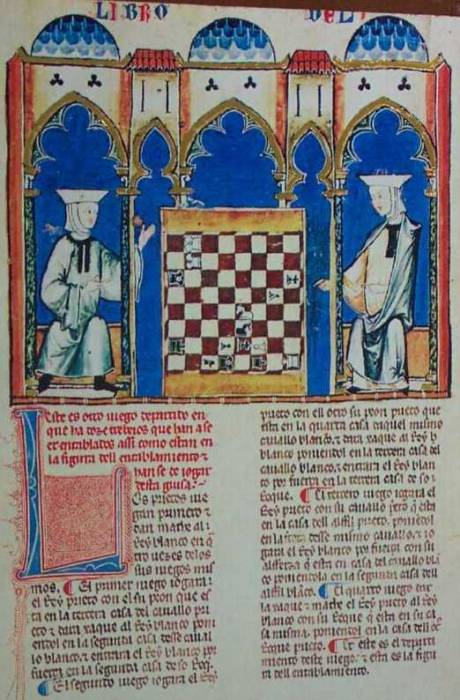 LIBRO DEL
Este es otro iuego departido en
que ha trebeios que han a se
er entablados assi como estan en
la figura dell entablamiento τ
han se de iogar
desta guisa.
Los prietos iue
gan primero τ
dan mathe al
Rey blanco en q
tro uezes delos
sus iuegos mis
mos. ¶ El primer iuego iogara
el Rey prieto con el su peon que es
ta en la tercera casa del cauallo pri
eto τ dara xaque al Rey blanco poni
endol en la segunda casa desse caual
lo blanco τ entrara el Rey blanco por
fuerça en la segunda casa de so Roq.
¶ El segundo iuego iogara el Rey
prieto con ell otro su peon prieto que
esta en la quarta casa daquel mismo
cauallo blanco τ dara xaque al Rey b
lanco poniendol en la tercera casa del
cauallo blanco τ entrara el Rey blan
co por fuerça en la tercera casa de so
Roque. ¶ El tercero iuego iogara el
Rey prieto con su cauallo prieto q esta
en la casa dell alffil prieto poniendol
en la desse mismo cauallo τ io
gara el Rey blanco por fuerça con su
alfferza q esta en casa del cauallo bla
co poniendola en la segunda casa dell
alffil blanco. ¶ El quarto iuego dar
la xaque τ mathe el Rey prieto al Rey
blanco con su Roque q esta en su ca
sa misma poniendol en la casa dell
Roque prieto. ¶ τ este es el departi
miento deste iuego τ esta es la figura
dell entablamiento.